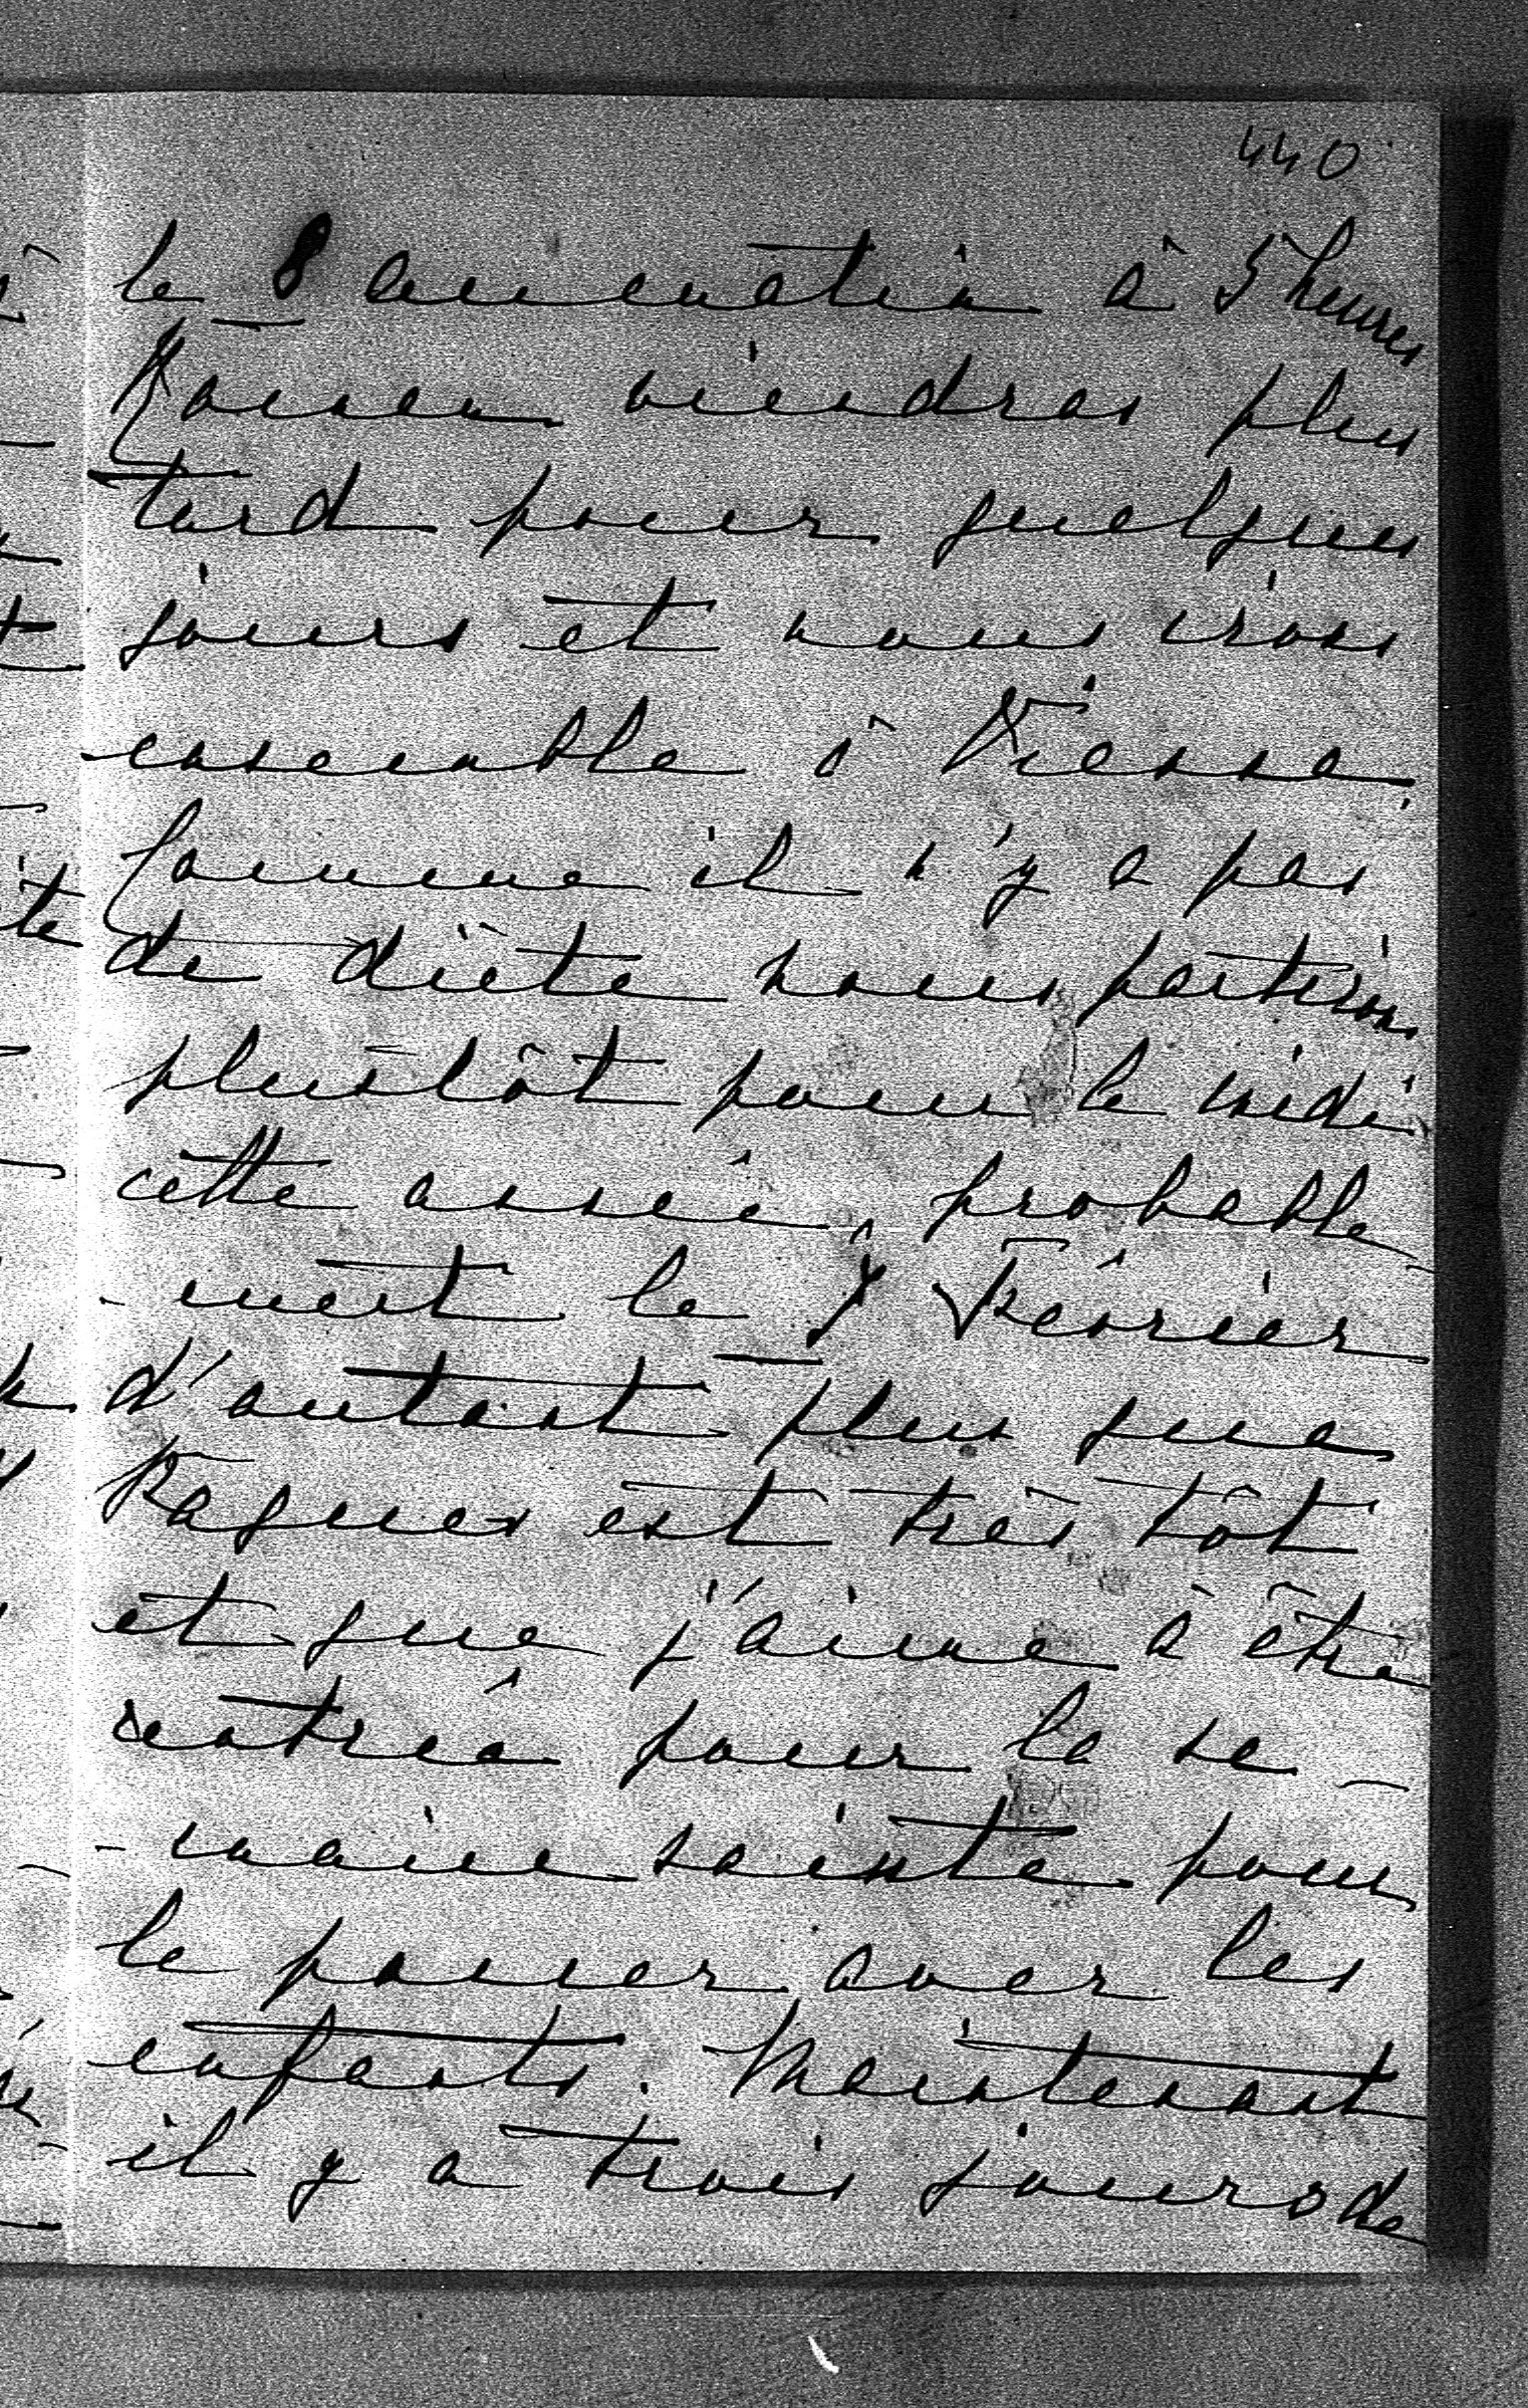 440
le 8 au matin à 5 heures
viendras plus
tard pour quelques
jours et nous irons
ensemble à Vienne.
Comme il n'y a pas
de diète nous partirons
plustôt pour le midi
cette année, probable
-ment le 7 Février
d'autant plus que
Paques est très tôt
et que j'aime à être
rentrée pour la se-
-maine sainte pour
le passer avec les
enfants. Maintenant
il y a trois jours de